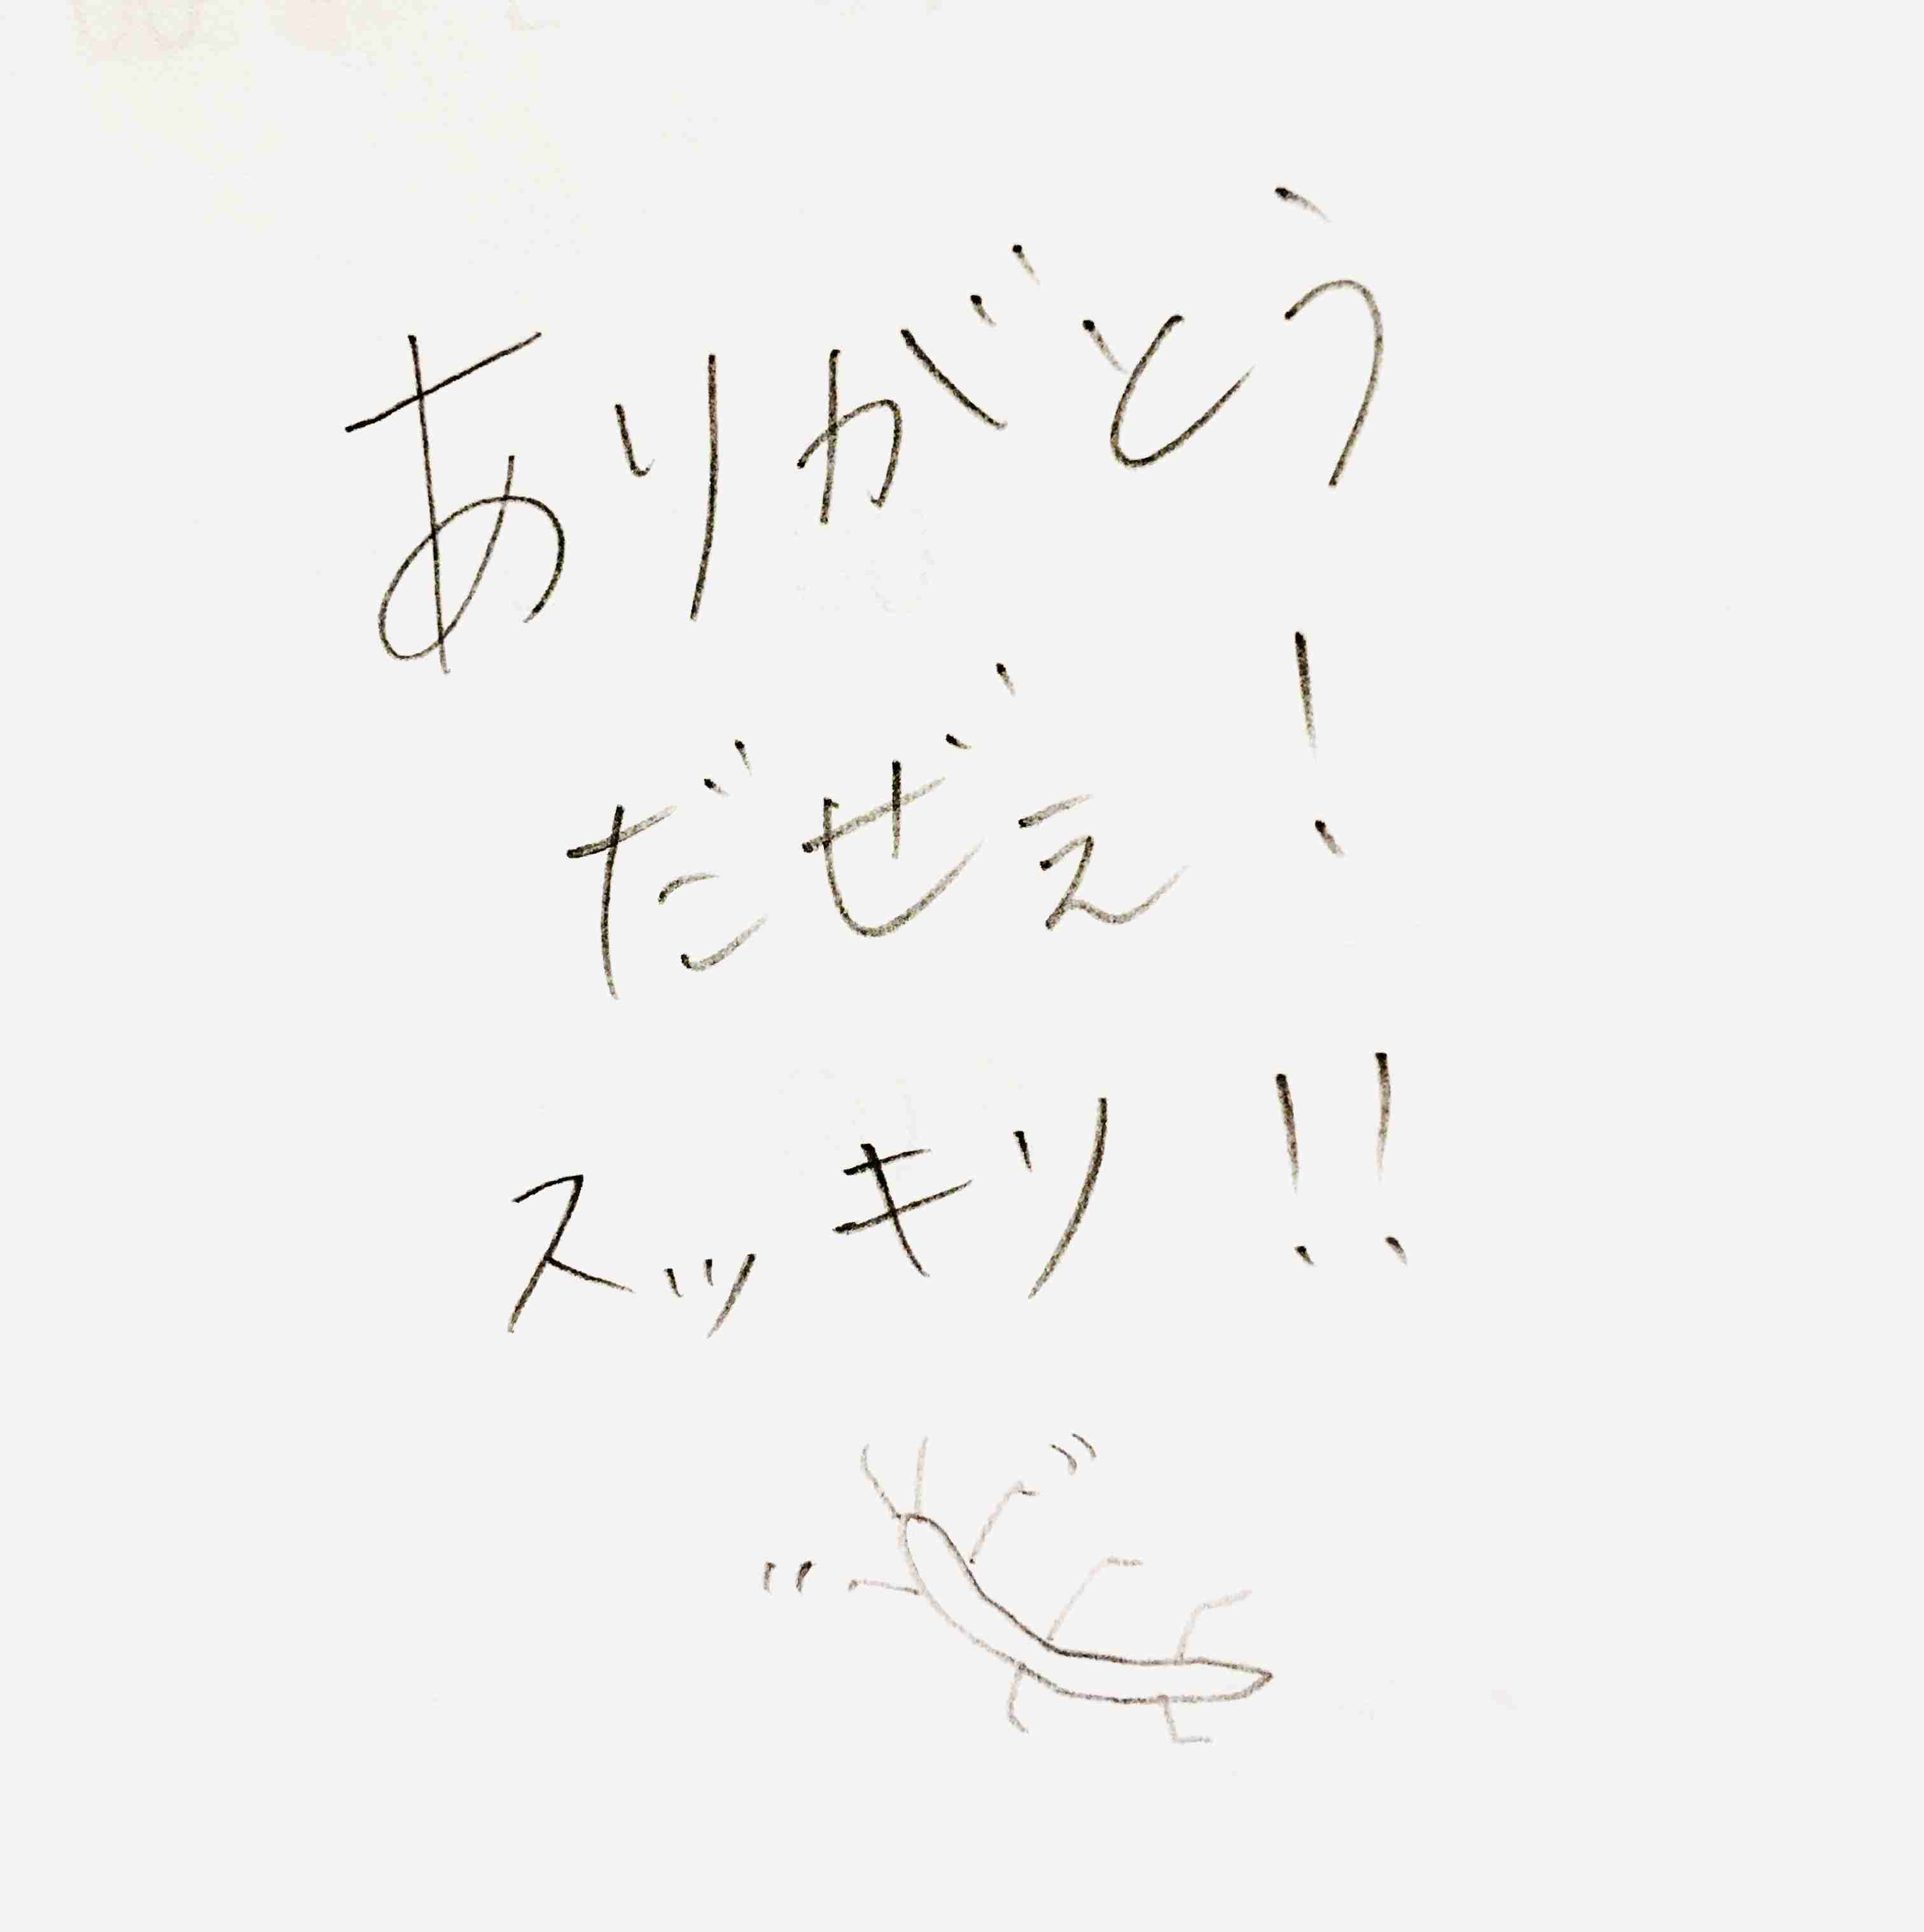 ありがとう
だぜぇ!
スッキリ!!